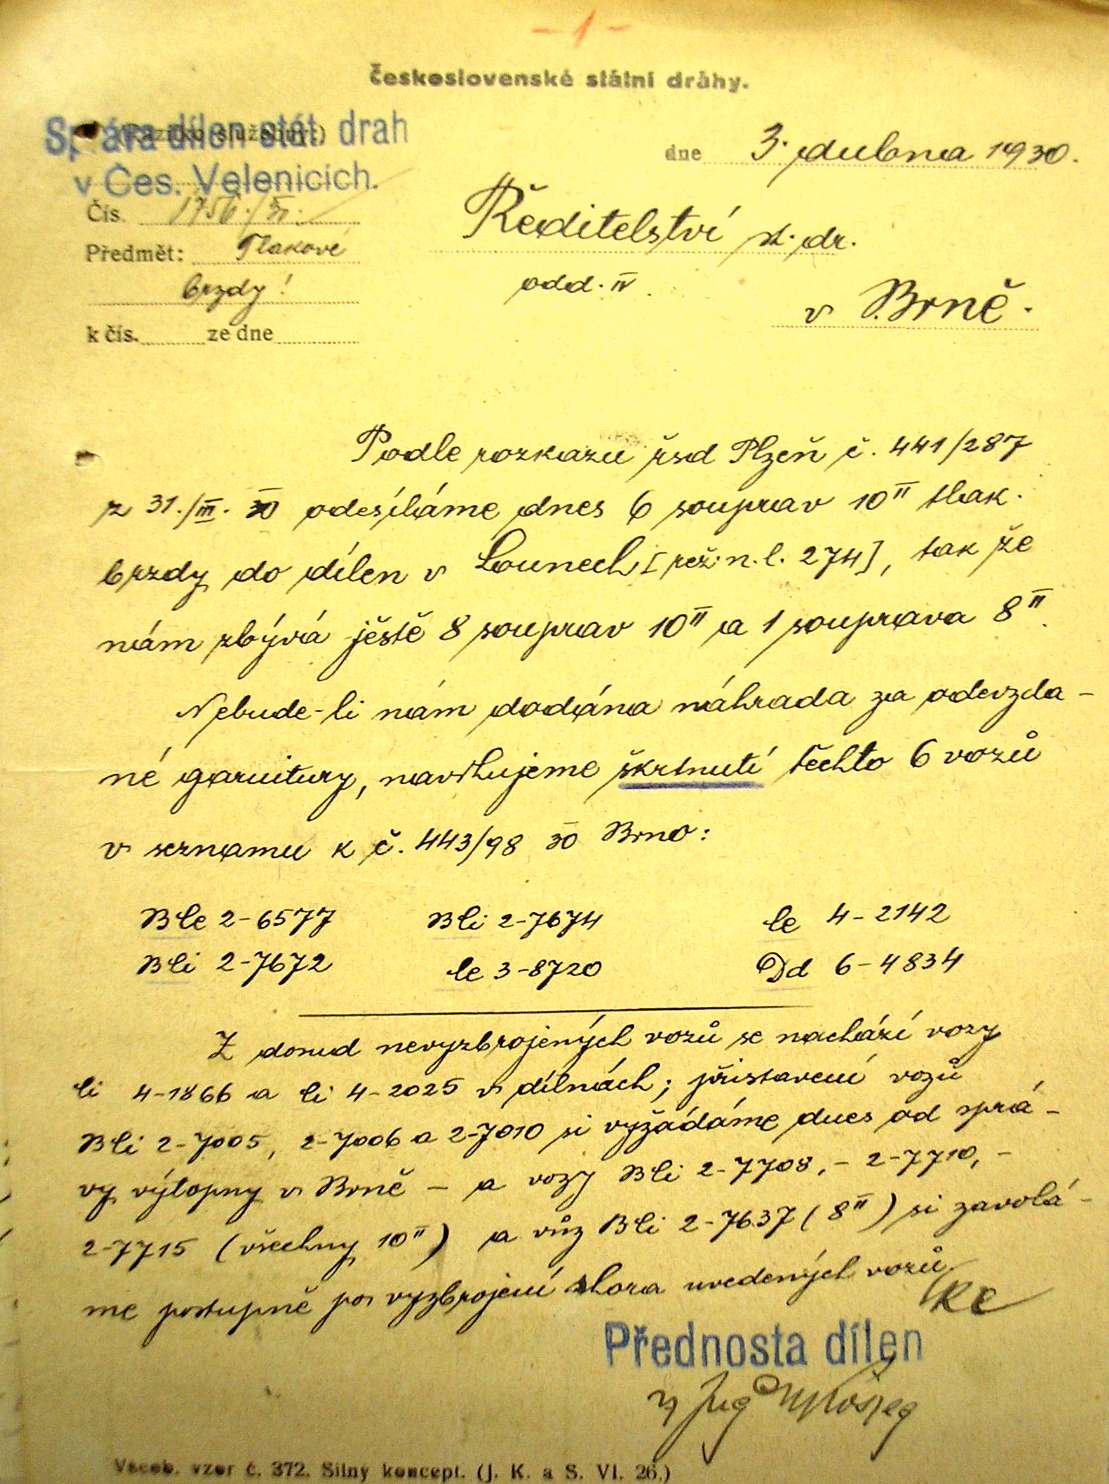 - 1 -
Československé státní dráhy.
Správa dílen stát. drah
v Čes. Velenicích.
dne 3. dubna 1930.
Čís. 1756./
Předmět: Tlakové
brzdy!
k čís. ze dne
Ředitelství st. dr.
odd. IV
v Brně.
Podle rozkazu řsd Plzeň č. 441/287
z 31./III. 30 odesíláme dnes 6 souprav 10" tlak.
brzdy do dílen v Lounech [rež. n. l. 274], tak že
nám zbývá ještě 8 souprav 10" a 1 souprava 8".
Nebude-li nám dodána náhrada za odevzda-
né garnitury, navrhujeme škrtnutí těchto 6 vozů
v seznamu k č. 443/98 30 Brno:
BCe 2-6577 BCi 2-7674 Ce 4-2142
BCi 2-7672 Ce 3-8720 Dd 6-4834
Z dosud nevyzbrojených vozů se nachází vozy
Ci 4-1866 a Ci 4-2025 v dílnách; přistavení vozů
BCi 2-7005, 2-7006 a 2-7010 si vyžádáme dnes od sprá-
vy výtopny v Brně - a vozy BCi 2-7708, - 2-7710, -
2-7715 (všechny 10") a vůz BCi 2-7637 (8") si zavolá-
me postupně po vyzbrojení shora uvedených vozů.
Přednosta dílen
Všeob. vzor č. 372. Silný koncept. (J. K. a S. VI. 26.)